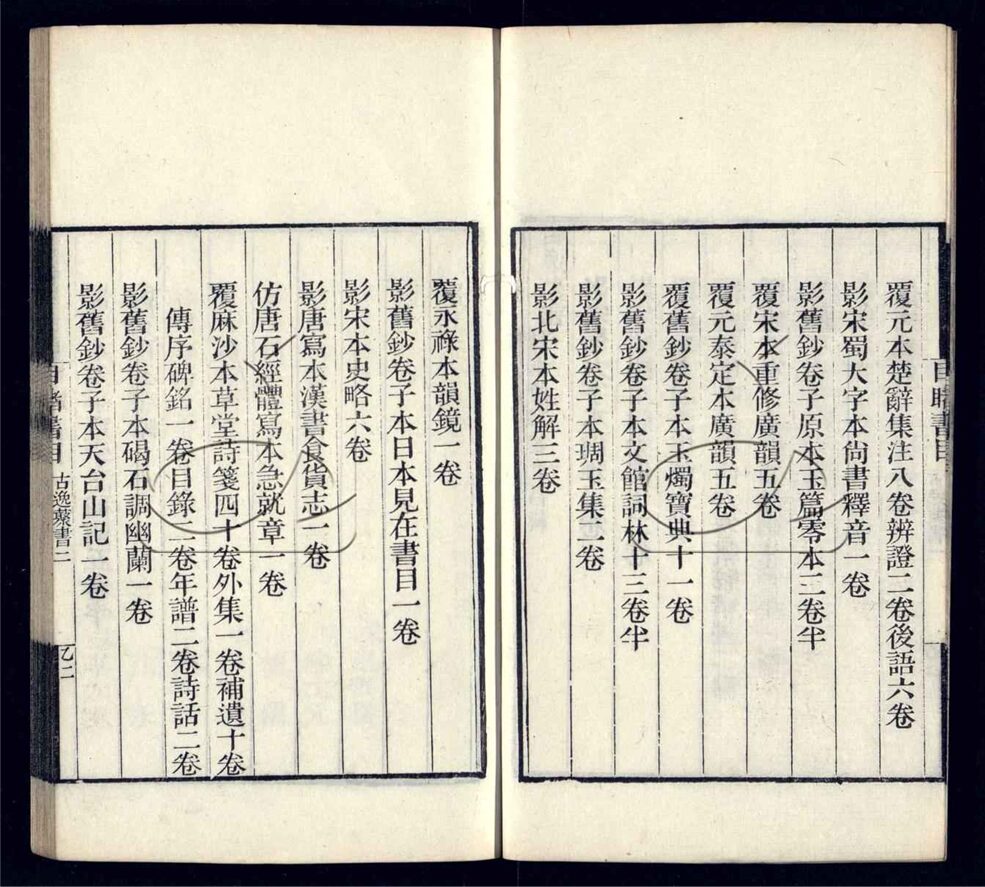 覆元本楚辭集注八卷辨證二卷後語六卷
影宋蜀大字本尙書釋音一卷
影舊鈔卷子原本玉篇零本三卷半
覆宋本重修廣韻五卷
覆元泰定本廣韻五卷
覆舊鈔卷子本玉燭寶典十一卷
影舊鈔卷子本文館詞林十三卷半
影舊鈔卷子本琱玉集二卷
影北宋本姓解三卷
覆永祿本韻鏡一卷
影舊鈔卷子本日本見在書目一卷
影宋本史略六卷
影唐寫本漢書食貨志一卷
仿唐石經體寫本急就章一卷
覆麻沙本草堂詩箋四十卷外集一卷補遺十卷
傳序碑銘一卷目錄二卷年譜二卷詩話二卷
影舊鈔卷子本碣石調幽蘭一卷
影舊鈔卷子本天台山記一卷
目睹書目
古逸叢書二
乙二